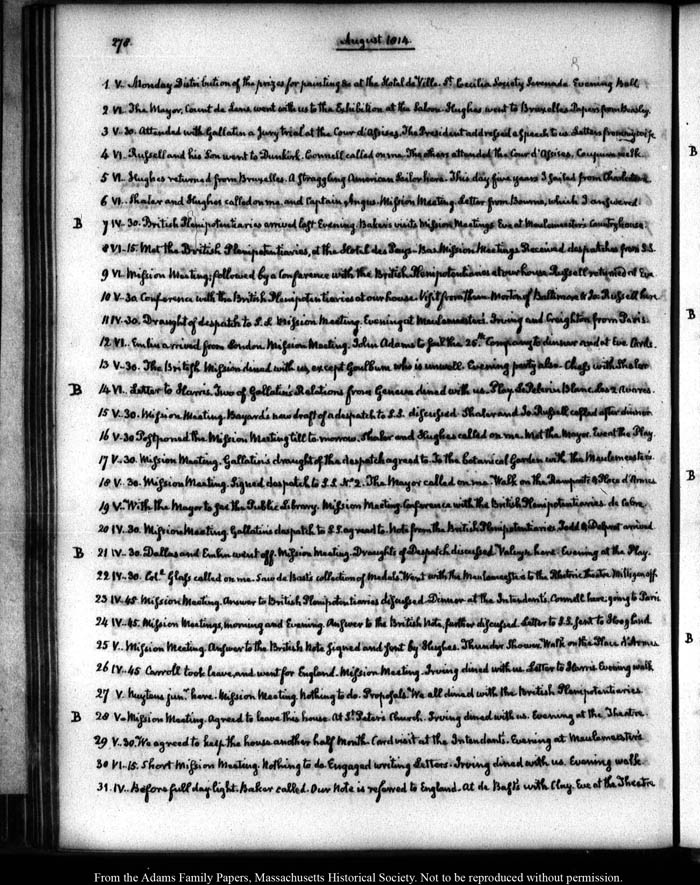 278.
August 1814.
8
1 V. Monday Distribution of the prizes for painting &c at the Hotel de Ville. St. Cecilia Society Serenade. Evening ball.
2 VI. The Mayor, Count de Lens went with us to the Exhibition at the Saloon. Hughes went to Bruxelles. Papers from
3 V. 30. Attended with Gallatin a Jury trial at the Cour d'Assises. The President addressed a Speech to us. Letters from my wife
4 VI. Russell and his Son went to Dunkirk. Connell called on me. The others attended the Cour d'Assises. walk.
5 VI. Hughes returned from Bruxelles. A Straggling American Sailor here. This day five years I sailed from Charlestown
6 VI. Shaler and Hughes called on me and Captain Angus. Mission Meeting. Letter from Bourne, which I answered.
B 7 IV. 30. British Plenipotentiaries arrived last Evening. Baker's visits Mission Meetings Eve at Meulemeester's Country house
8 VI. 15. Met the British Plenipotentiaries, at the Hotel des Pays-Bas Mission Meetings Received despatches from S.S.
9 VI. Mission Meeting; followed by a Conference with the British Plenipotentiaries at our house. Russell returned at Eve.
10 V. 30. Conference with the British Plenipotentiaries at our house. Visit from them. Morton of Baltimore & Jo: Russell here
11 IV. 30. Draught of despatch to S.S. Mission Meeting. Evening at Meulemeester's. Irving and Creighton from Paris.
12 VI. arrived from London. Mission Meeting. John Adams to the 26th. Company to dinner and at Eve Cards.
13 V. 30. The British Mission dined with us, except Goulburn who is unwell. Evening party also. Chess with Shaler
B 14 VI. Letter to Harris. Two of Gallatin's Relations from Geneva dined with us. Play Le Pelerin Blanc. les 2 Avares.
15 V. 30. Mission Meeting. Bayard's new draft of a despatch to S.S. discussed. Shaler and Jo. Russell called after dinner
16 V. 30 Postponed the Mission Meeting till to-morrow. Shaler and Hughes called on me. Met the Mayor. Eve at the Play.
17 V. 30. Mission Meeting. Gallatin's draught of the despatch agreed to. To the Botanical Garden with the Meulemeesters.
18 V. 30. Mission Meeting. Signed despatch to S.S. N. 2. The Mayor called on me. Walk on the Ramparts & Place d'Armes
19 V. With the Mayor to see the Public Library. Mission Meeting Conference with the British Plenipotentiaries. de Cabre.
20 IV. 30. Mission Meeting. Gallatin's despatch to S.S. agreed to. Note from the British Plenipotentiaries Todd & arrived
B 21 IV. 30. Dallas and went off. Mission Meeting. Draughts of Despatch discussed. here. Evening at the Play.
22 IV. 30. Coll. Glass called on me. Saw de Bast's collection of Medals. Went with the Meulemeesters to the Rhetoric theatre Milligan off.
23 IV. 45. Mission Meeting. Answer to British Plenipotentiaries discussed. Dinner at the Intendant's. Connell here, going to Paris
24 IV. 45. Mission Meetings, morning and Evening. Answer to the British Note, further discussed. Letter to S.S. sent to
25 V. Mission Meeting. Answer to the British Note Signed and sent by Hughes. Thunder Shower. Walk on the Place d'Armes
26 IV. 45 Carroll took leave, and went for England. Mission Meeting. Irving dined with us. Letter to Harris. Evening walk
27 V. junr. here. Mission Meeting. Nothing to do. Proposals. We all dined with the British Plenipotentiaries.
B 28 V. Mission Meeting. Agreed to leave this house. At St. Peter's Church. Irving dined with us. Evening at the Theatre.
29 V. 30. We agreed to keep the house another half Month. Card visit at the Intendant's. Evening at Meulemeester's
30 VI. 15. Short Mission Meeting. Nothing to do. Engaged writing Letters. Irving dined with us. Evening walk.
31. IV. Before full day light. Baker called. Our Note is referred to England. At de Bast's with Clay. Eve at the Theatre
B
B
B
B
From the Adams Family Papers, Massachusetts Historical Society. Not to be reproduced without permission.